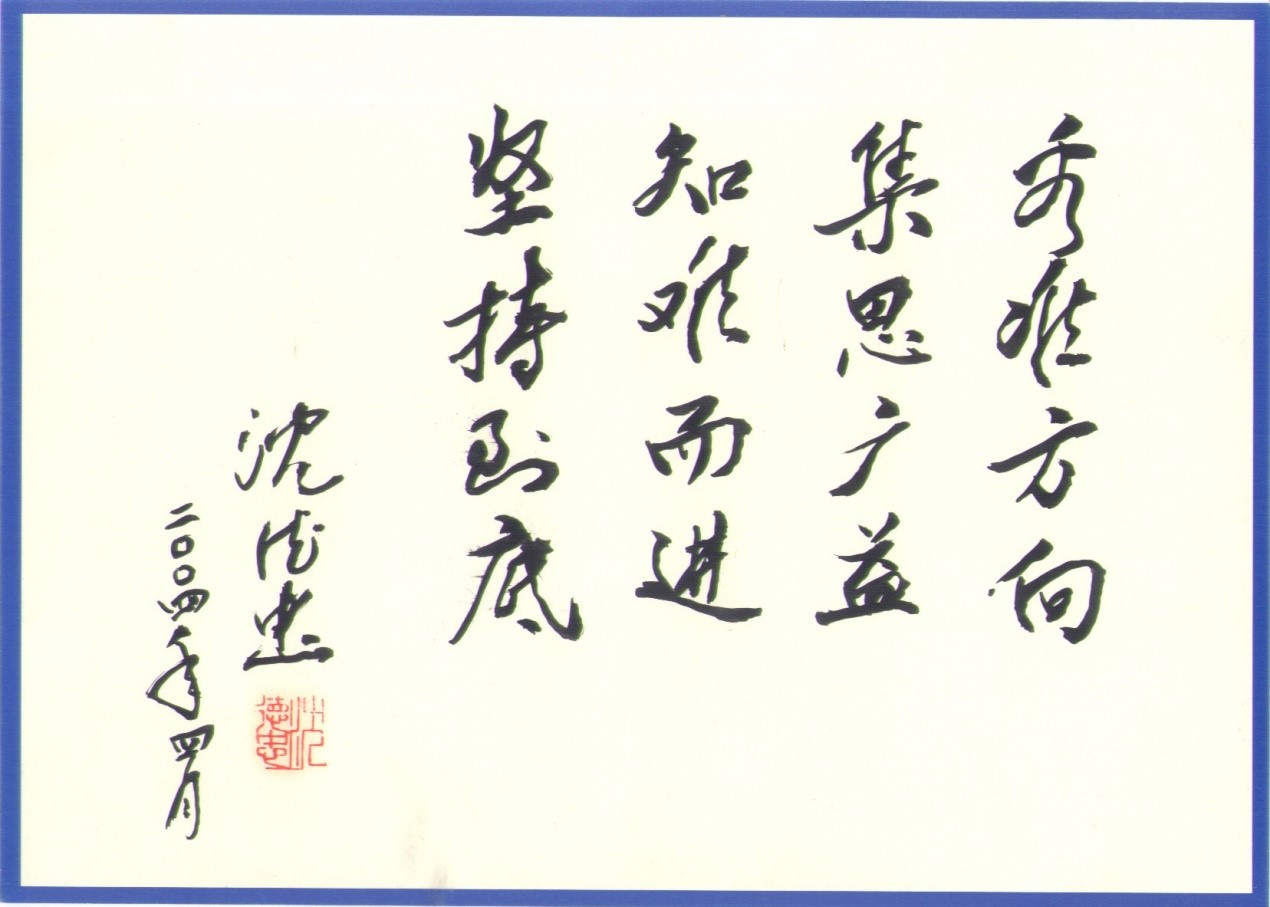 看准方向
集思广益
知难而进
坚持到底
沈德忠
二〇〇四年四月
沈德忠